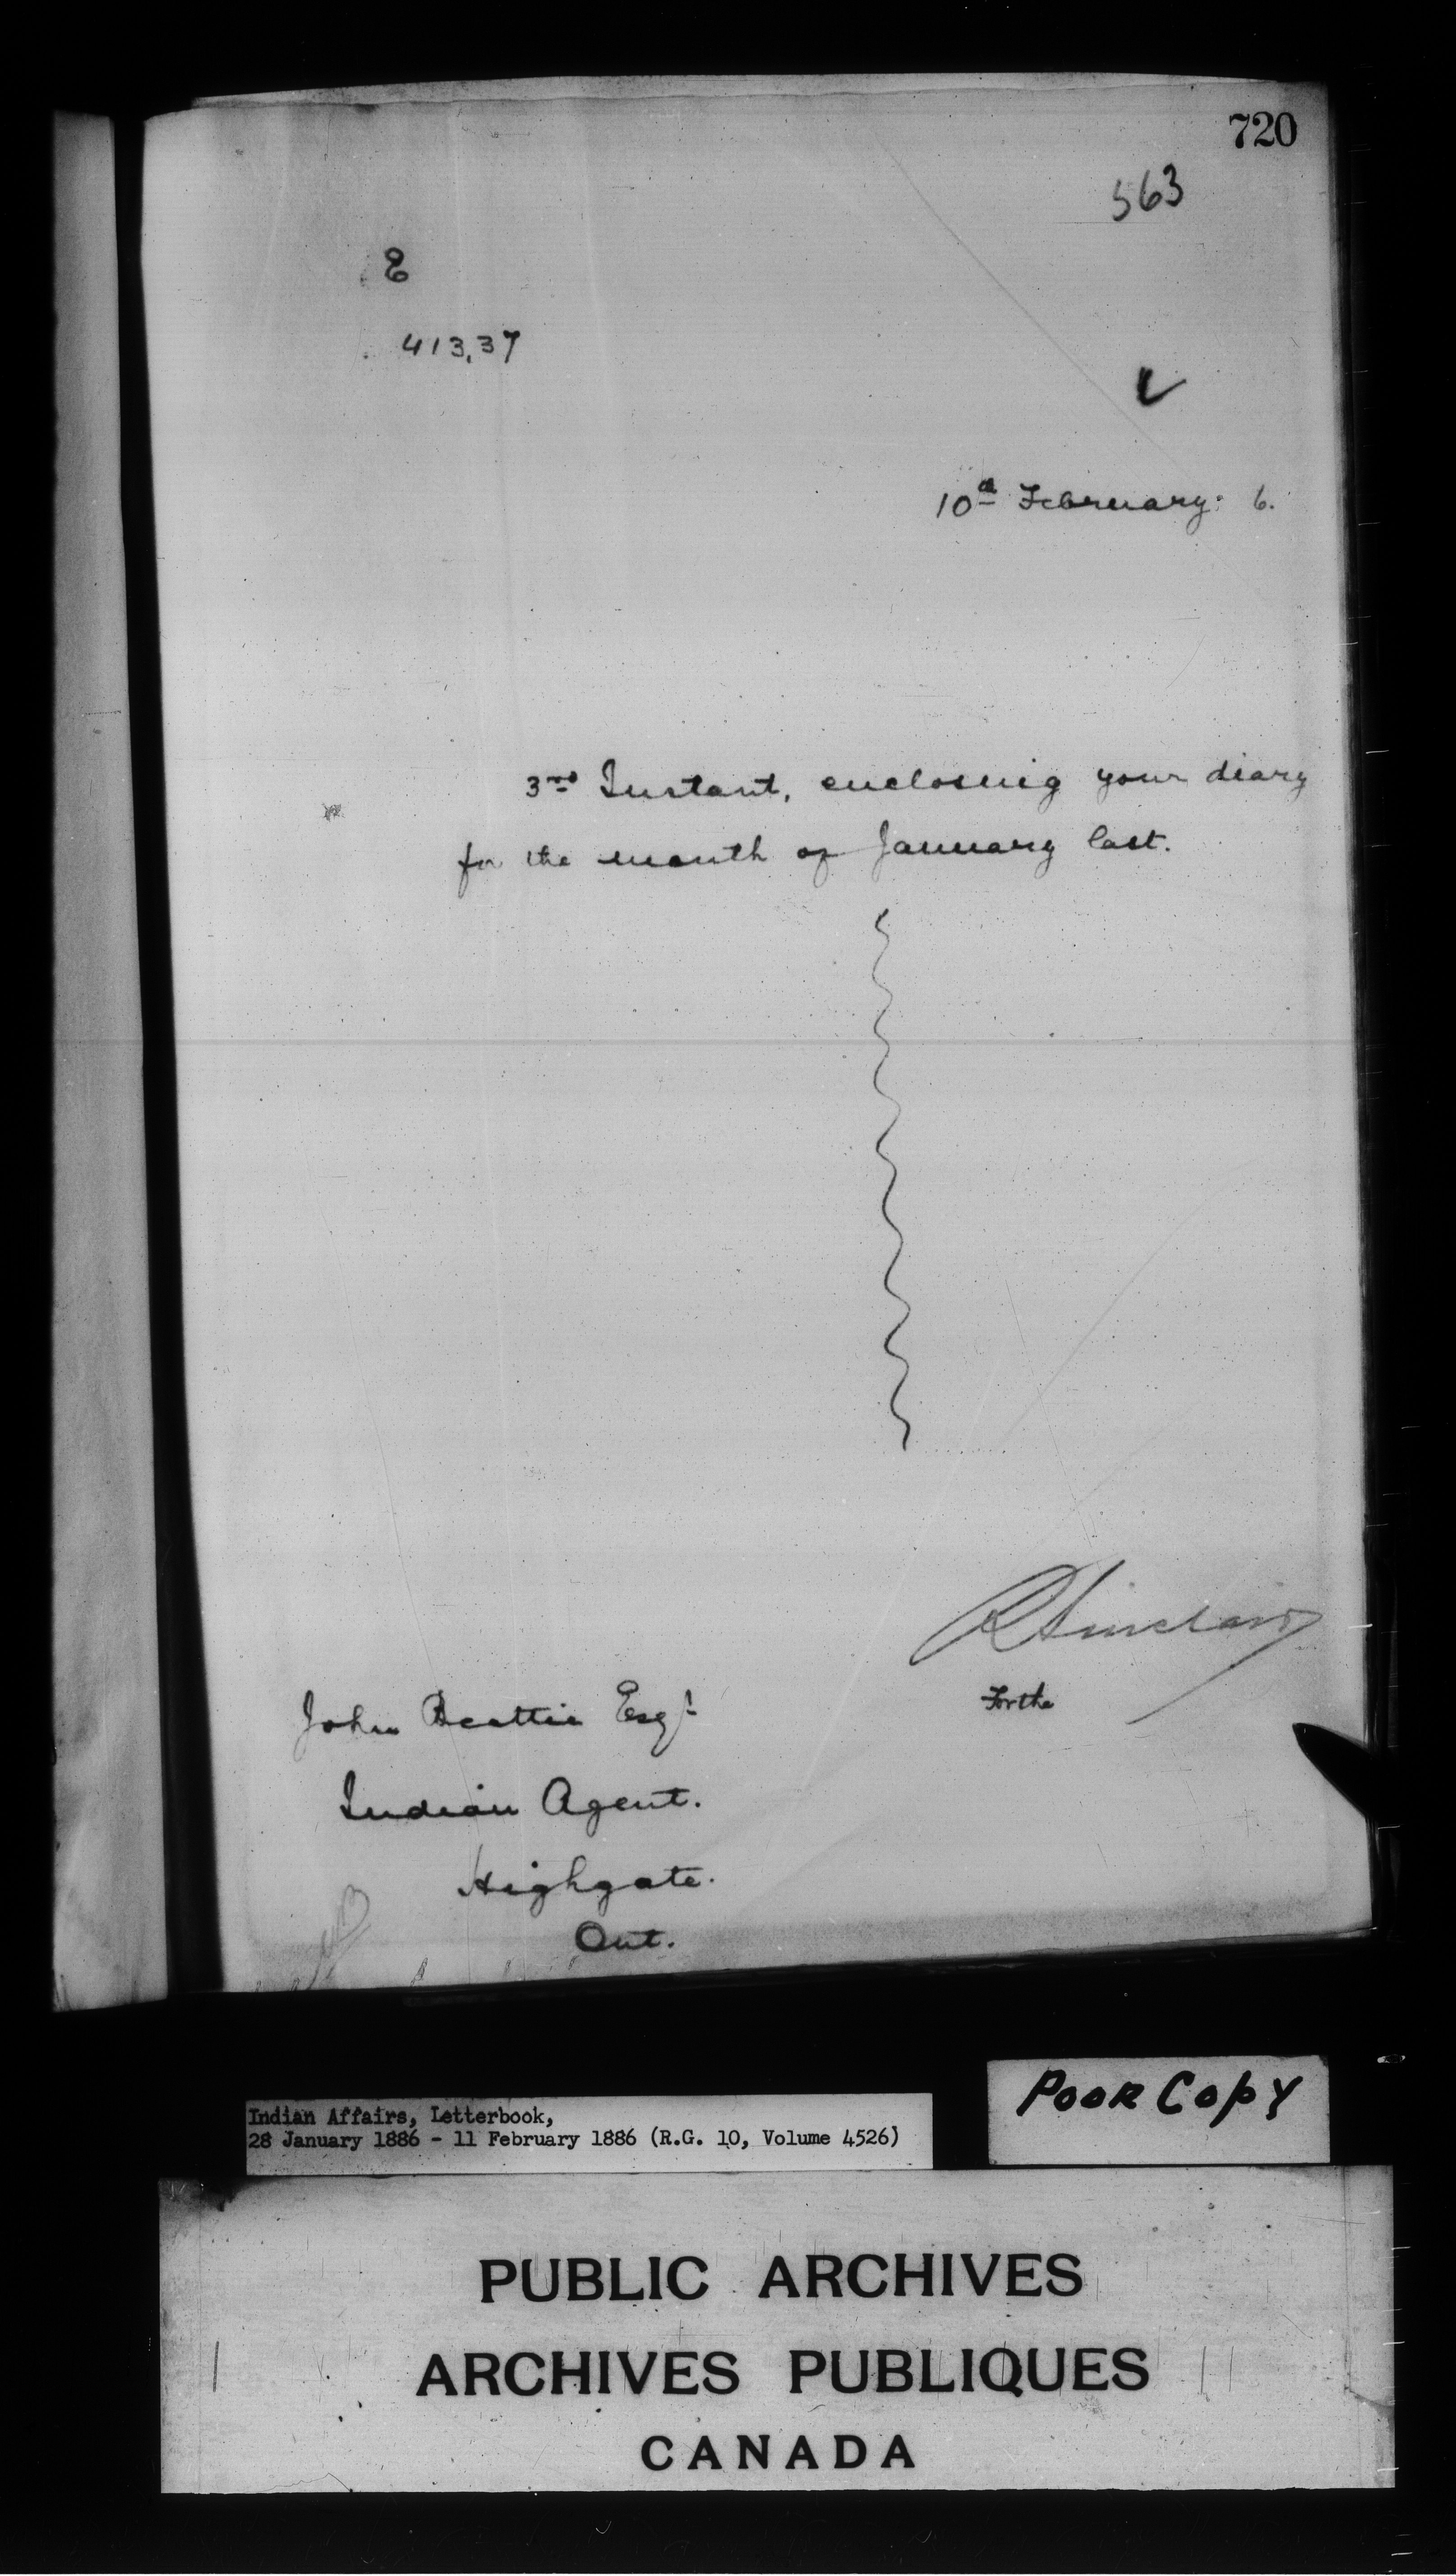 720
563
E
413,37
10th February. 6.
3rd Instant, enclosing your diary
for the month of January last.
R Sinclair
For the
John Beattie Esqr
Indian Agent.
Highgate.
Ont.
Indian Affairs, Letterbook,
28 January 1886 - 11 February 1886 (R.G. 10, Volume 4526)
POOR COPY
PUBLIC ARCHIVES
ARCHIVES PUBLIQUES
CANADA